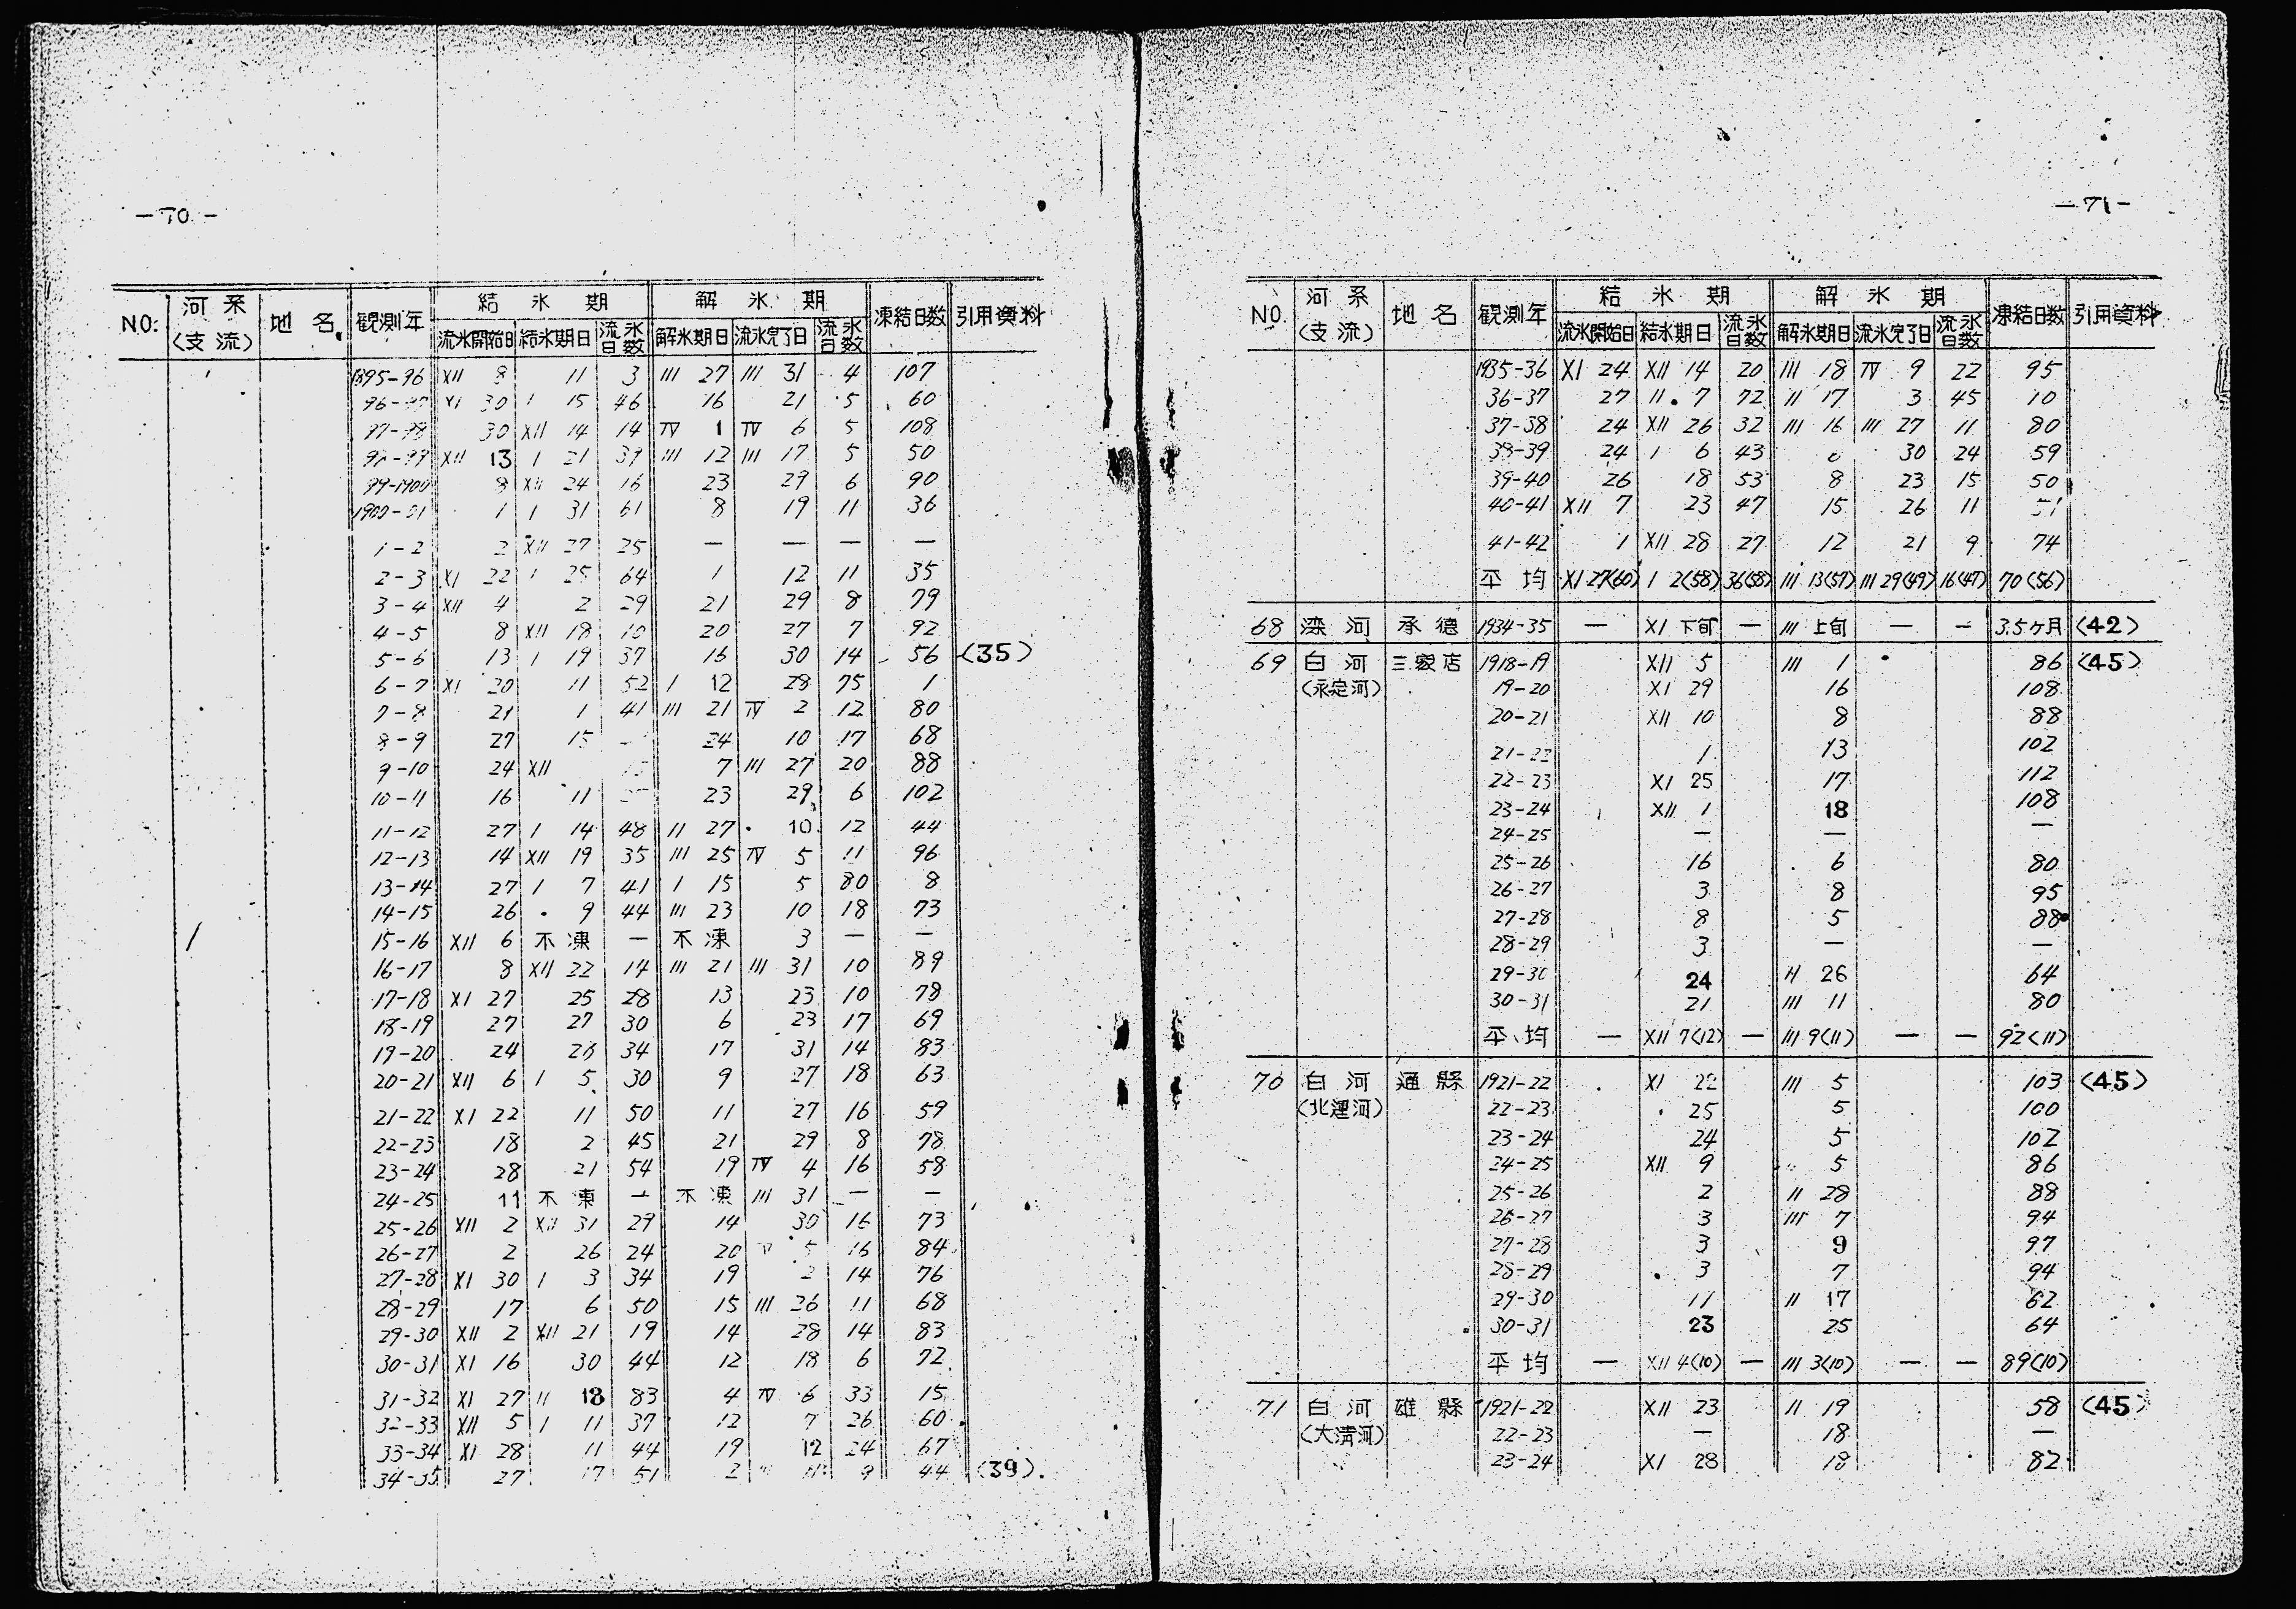 -70-
NO. 河系(支流) 地名 観測年 結氷期 解氷期 凍結日数 引用資料
流氷開始日 結氷期日 流氷日数 解氷期日 流氷完了日 流氷日数
1895-96 XII 8 11 3 III 27 III 31 4 107
96-97 XI 30 I 15 46 16 21 5 60
97-98 30 XII 14 14 IV 1 IV 6 5 108
98-99 XII 13 I 21 39 III 12 III 17 5 50
99-1900 8 XII 24 16 23 29 6 90
1900-01 1 I 31 61 8 19 11 36
1-2 2 XII 27 25 — — — —
2-3 XI 22 I 25 64 1 12 11 35
3-4 XII 4 2 29 21 29 8 79
4-5 8 XII 18 10 20 27 7 92
5-6 13 I 19 37 16 30 14 56 (35)
6-7 XI 20 11 52 I 12 28 75 1
7-8 21 1 41 III 21 IV 2 12 80
8-9 27 15 24 10 17 68
9-10 24 XII 7 III 27 20 88
10-11 16 11 23 29 6 102
11-12 27 I 14 48 II 27 10 12 44
12-13 14 XII 19 35 III 25 IV 5 11 96
13-14 27 I 7 41 I 15 5 80 8
14-15 26 9 44 III 23 10 18 73
15-16 XII 6 不凍 — 不凍 3 — —
16-17 8 XII 22 14 III 21 III 31 10 89
17-18 XI 27 25 28 13 23 10 78
18-19 27 27 30 6 23 17 69
19-20 24 28 34 17 31 14 83
20-21 XII 6 I 5 30 9 27 18 63
21-22 XI 22 11 50 11 27 16 59
22-23 18 2 45 21 29 8 78
23-24 28 21 54 19 IV 4 16 58
24-25 11 不凍 — 不凍 III 31 — —
25-26 XII 2 XII 31 29 14 30 16 73
26-27 2 26 24 20 IV 5 16 84
27-28 XI 30 I 3 34 19 2 14 76
28-29 17 6 50 15 III 26 11 68
29-30 XII 2 XII 21 19 14 28 14 83
30-31 XI 16 30 44 12 18 6 72
31-32 XI 27 II 18 83 4 IV 6 33 15
32-33 XII 5 I 11 37 12 7 26 60
33-34 XI 28 11 44 19 12 24 67
34-35 27 17 51 2 9 44 (39)
-71-
NO. 河系(支流) 地名 観測年 結氷期 解氷期 凍結日数 引用資料
流氷開始日 結氷期日 流氷日数 解氷期日 流氷完了日 流氷日数
1935-36 XI 24 XII 14 20 III 18 IV 9 22 95
36-37 27 II 7 72 II 17 3 45 10
37-38 24 XII 26 32 III 16 III 27 11 80
38-39 24 I 6 43 30 24 59
39-40 26 18 53 8 23 15 50
40-41 XII 7 23 47 15 26 11
41-42 1 XII 28 27 12 21 9 74
平均 XI 27(60) I 2(58) 36(58) III 13(57) III 29(49) 16(47) 70(56)
68 滦河 承德 1934-35 — XI 下旬 — III 上旬 — — 3.5ヶ月 (42)
69 白河 三家店 1918-19 XII 5 III 1 86 (45)
(永定河) 19-20 XI 29 16 108
20-21 XII 10 8 88
21-22 1 13 102
22-23 XI 25 17 112
23-24 XII 1 18 108
24-25 — — —
25-26 16 6 80
26-27 3 8 95
27-28 8 5 88
28-29 3 — —
29-30 24 II 26 64
30-31 21 III 11 80
平均 — XII 7(12) — III 9(11) — — 92(11)
70 白河 通縣 1921-22 XI 22 III 5 103 (45)
(北運河) 22-23 25 5 100
23-24 24 5 102
24-25 XII 9 5 86
25-26 2 II 28 88
26-27 3 III 7 94
27-28 3 9 97
28-29 3 7 94
29-30 11 II 17 62
30-31 23 25 64
平均 — XII 4(10) — III 3(10) — — 89(10)
71 白河 雄縣 1921-22 XII 23 II 19 58 (45)
(大清河) 22-23 — 18 —
23-24 XI 28 18 82